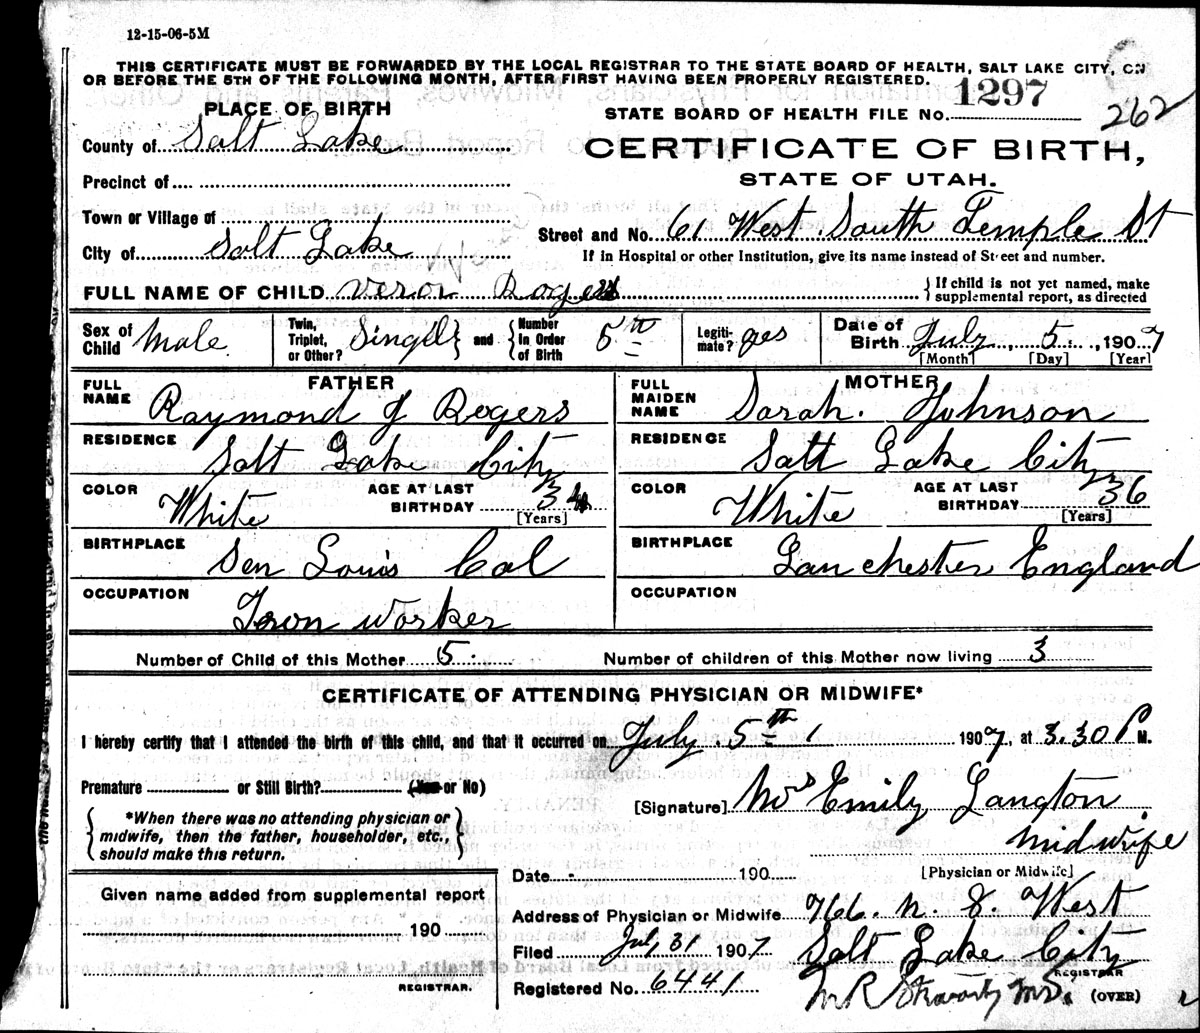 12-15-06-5M
THIS CERTIFICATE MUST BE FORWARDED BY THE LOCAL REGISTRAR TO THE STATE BOARD OF HEALTH, SALT LAKE CITY, ON
OR BEFORE THE 5TH OF THE FOLLOWING MONTH, AFTER FIRST HAVING BEEN PROPERLY REGISTERED.
PLACE OF BIRTH
STATE BOARD OF HEALTH FILE No. 1297
262
County of Salt Lake
CERTIFICATE OF BIRTH,
STATE OF UTAH.
Precinct of
Town or Village of
City of Salt Lake
Street and No. 61 West South Temple St
If in Hospital or other Institution, give its name instead of Street and number.
FULL NAME OF CHILD Veron Rogers
If child is not yet named, make supplemental report, as directed
Sex of Child Male
Twin, Triplet, or Other? Singel and Number in Order of Birth 5th
Legitimate? yes
Date of Birth July 5 1907
[Month] [Day] [Year]
FATHER
FULL NAME Raymond J Rogers
RESIDENCE Salt Lake City
COLOR White AGE AT LAST BIRTHDAY 34 [Years]
BIRTHPLACE Sen Louis Cal
OCCUPATION Iron Worker
MOTHER
FULL MAIDEN NAME Sarah Johnson
RESIDENCE Salt Lake City
COLOR White AGE AT LAST BIRTHDAY 36 [Years]
BIRTHPLACE Lanchester England
OCCUPATION
Number of Child of this Mother 5. Number of children of this Mother now living 3
CERTIFICATE OF ATTENDING PHYSICIAN OR MIDWIFE*
I hereby certify that I attended the birth of this child, and that it occurred on July 5th 1907, at 3.30 P M.
Premature or Still Birth? (Yes or No)
[Signature] Mrs Emily Langton
midwife
[Physician or Midwife]
*When there was no attending physician or
midwife, then the father, householder, etc.,
should make this return.
Given name added from supplemental report
190
REGISTRAR.
Date 190
Address of Physician or Midwife 766. N. 8. West
Filed July 31 1907 Salt Lake City
Registered No. 6441
REGISTRAR
(OVER)